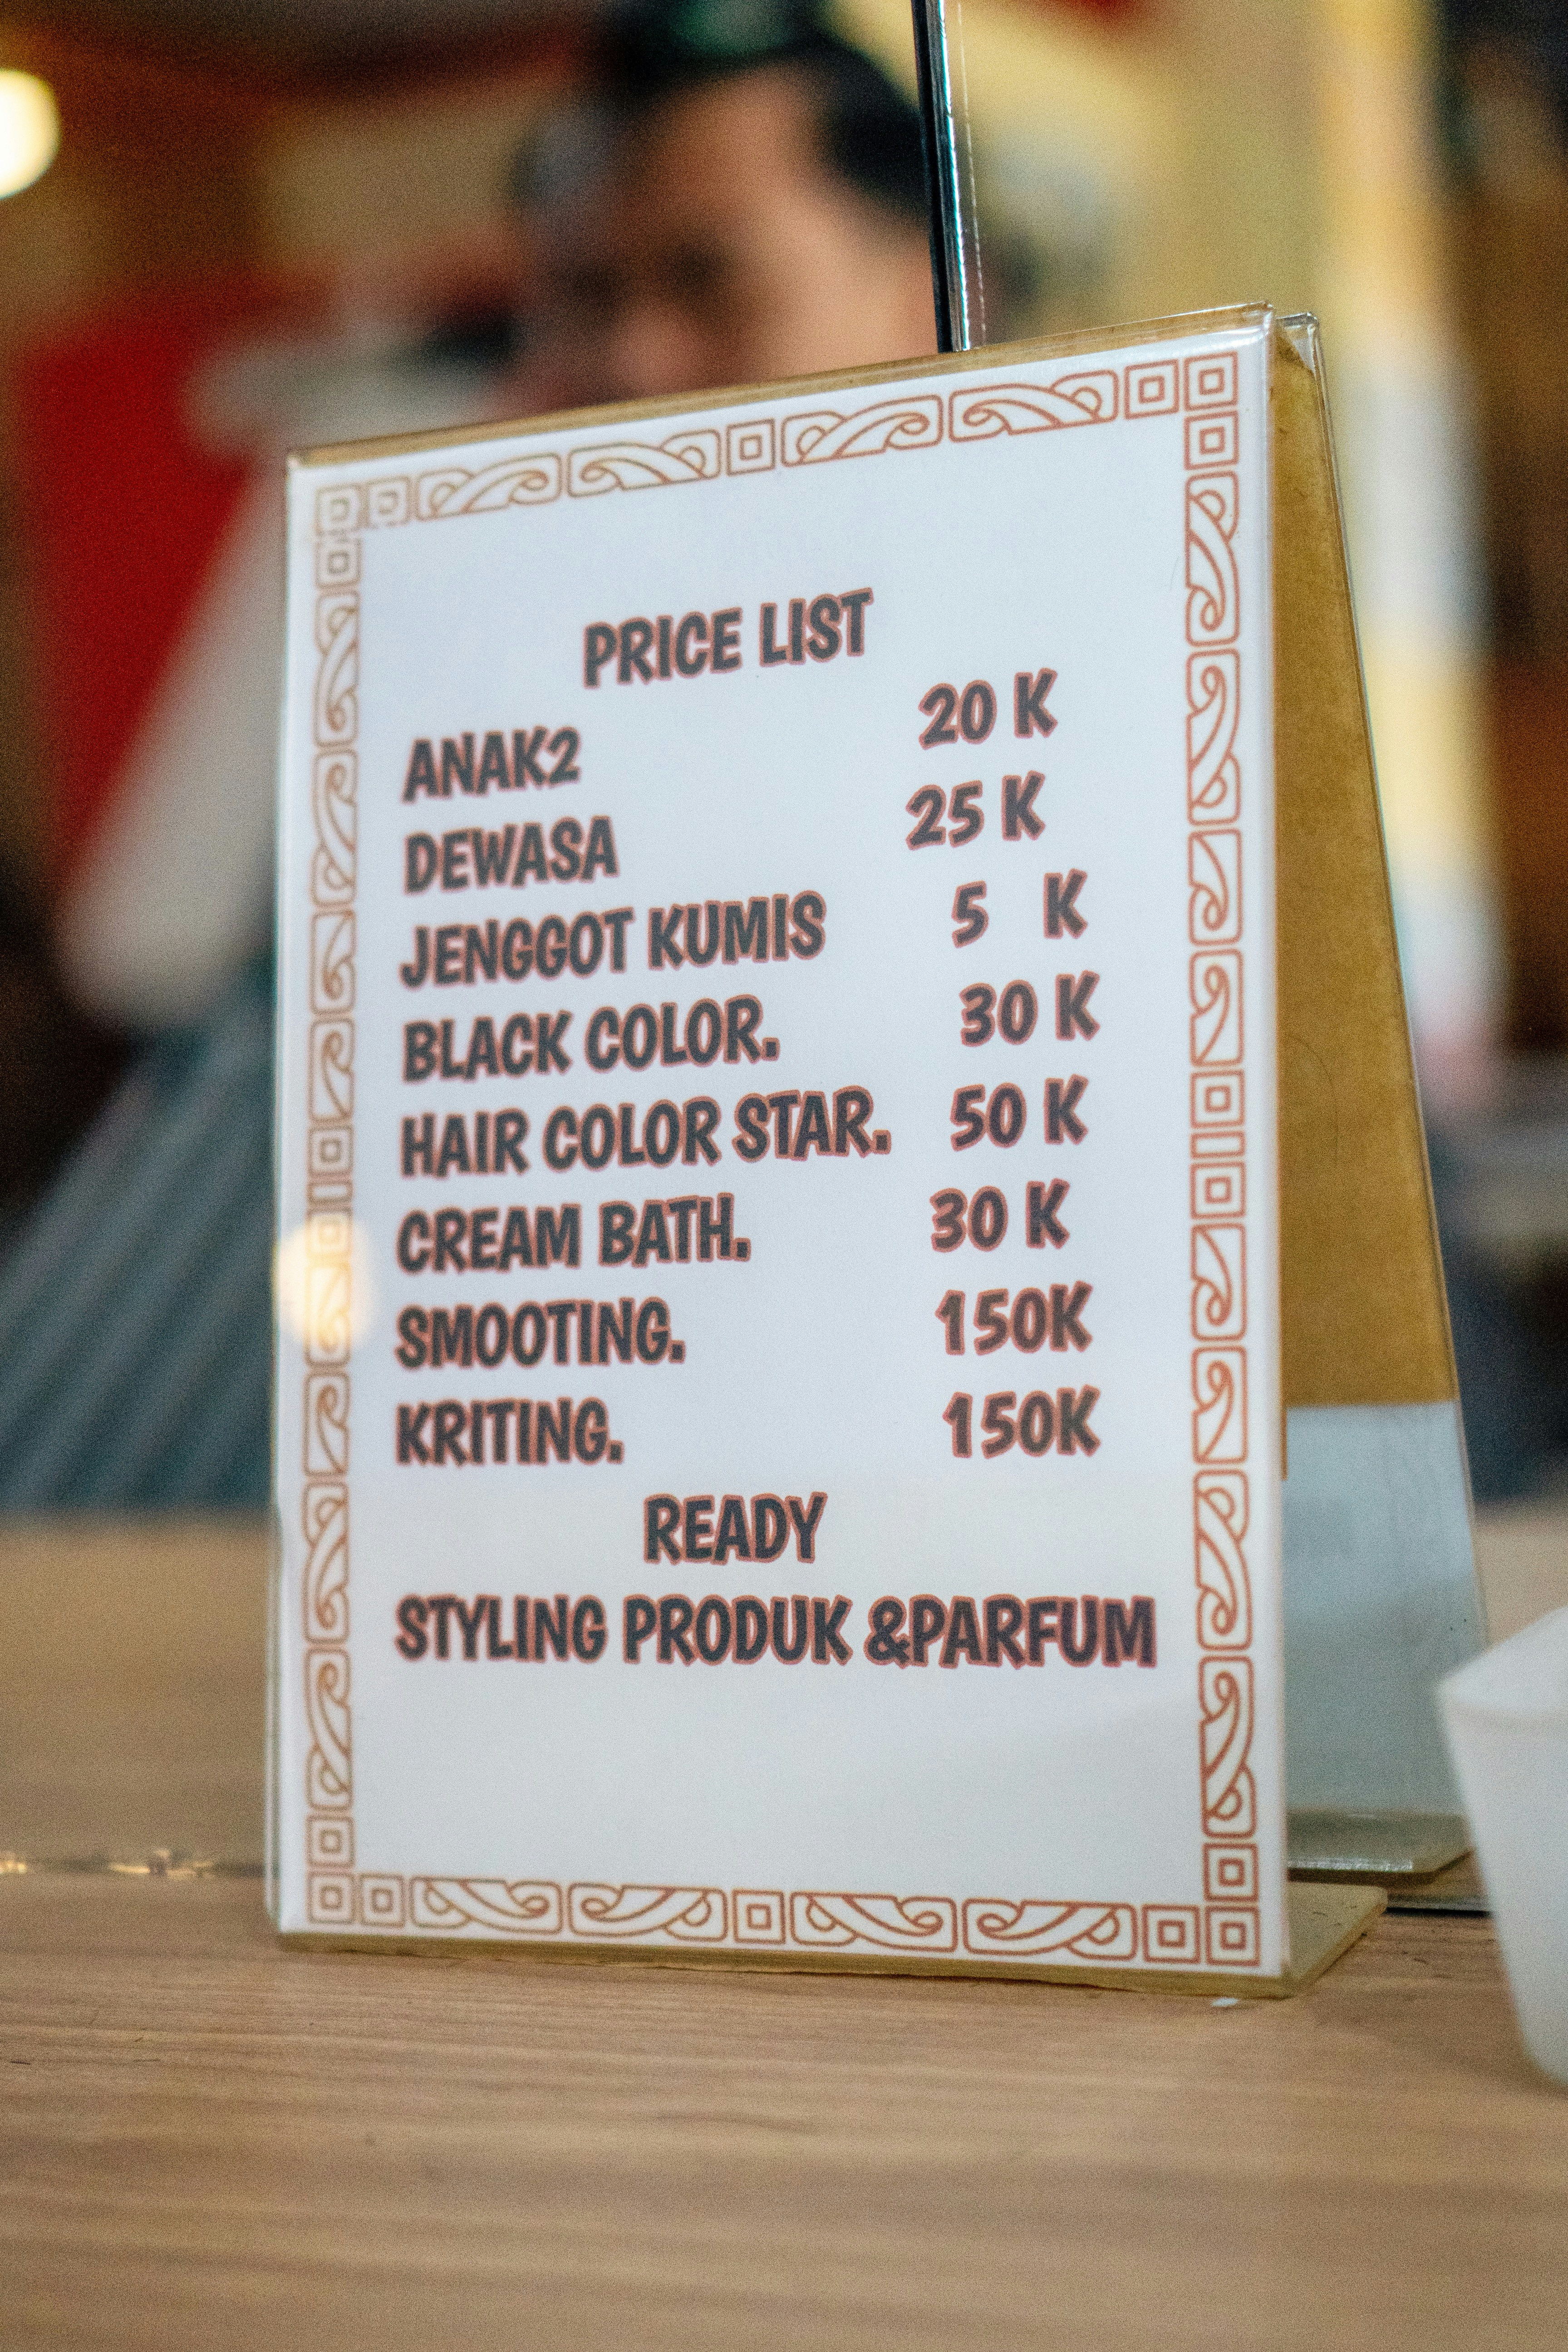 PRICE LIST
ANAK2 20 K
DEWASA 25 K
JENGGOT KUMIS 5 K
BLACK COLOR. 30 K
HAIR COLOR STAR. 50 K
CREAM BATH. 30 K
SMOOTING. 150K
KRITING. 150K
READY
STYLING PRODUK &PARFUM